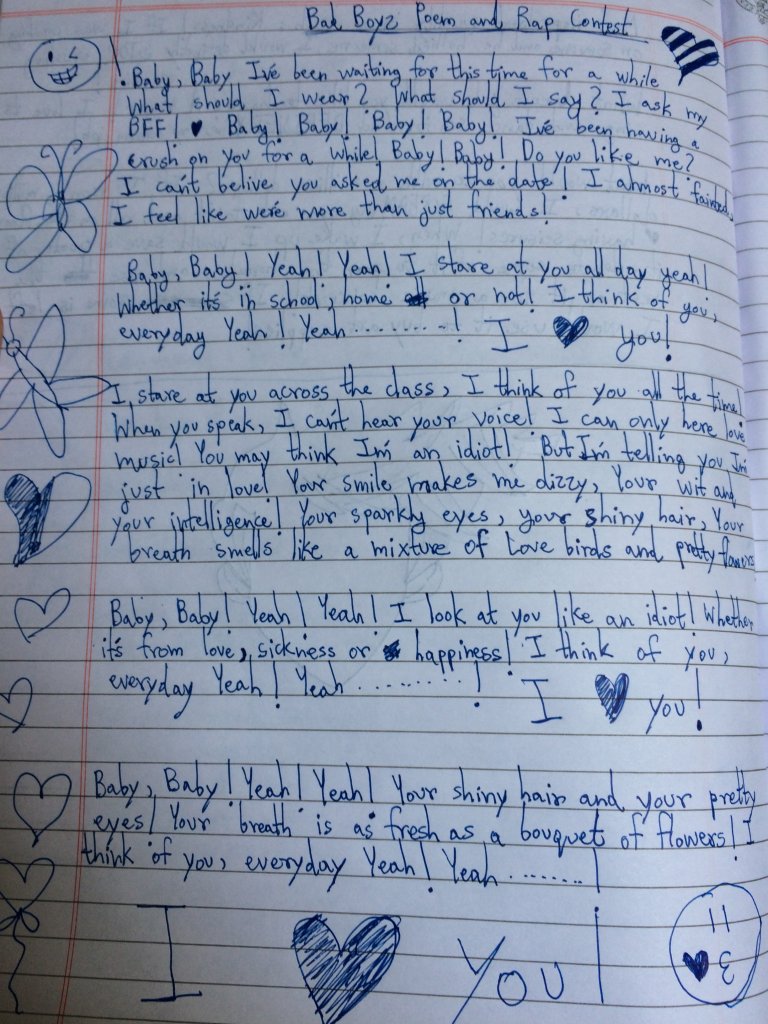 Bad Boyz Poem and Rap Contest
Baby, Baby I've been waiting for this time for a while
What should I wear? What should I say? I ask my
BFF! ♥ Baby! Baby! Baby! Baby! I've been having a
crush on you for a while! Baby! Baby! Do you like me?
I can't belive you asked me on the date! I almost fainted,
I feel like we're more than just friends!
Baby, Baby! Yeah! Yeah! I stare at you all day yeah!
Whether it's in school, home or not! I think of you,
everyday Yeah! Yeah ..........! I ♥ you!
I stare at you across the class, I think of you all the time!
When you speak, I can't hear your voice! I can only here love
music! You may think I'm an idiot! But I'm telling you I'm
just in love! Your smile makes me dizzy, Your wit and
your intelligence! Your sparkly eyes, your shiny hair, Your
breath smells like a mixture of Love birds and pretty flowers
Baby, Baby! Yeah! Yeah! I look at you like an idiot! Whether
it's from love, sickness or happiness! I think of you,
everyday Yeah! Yeah ..........! I ♥ you!
Baby, Baby! Yeah! Yeah! Your shiny hair and your pretty
eyes! Your breath is as fresh as a bouquet of flowers! I
think of you, everyday Yeah! Yeah ........!
I ♥ YOU!